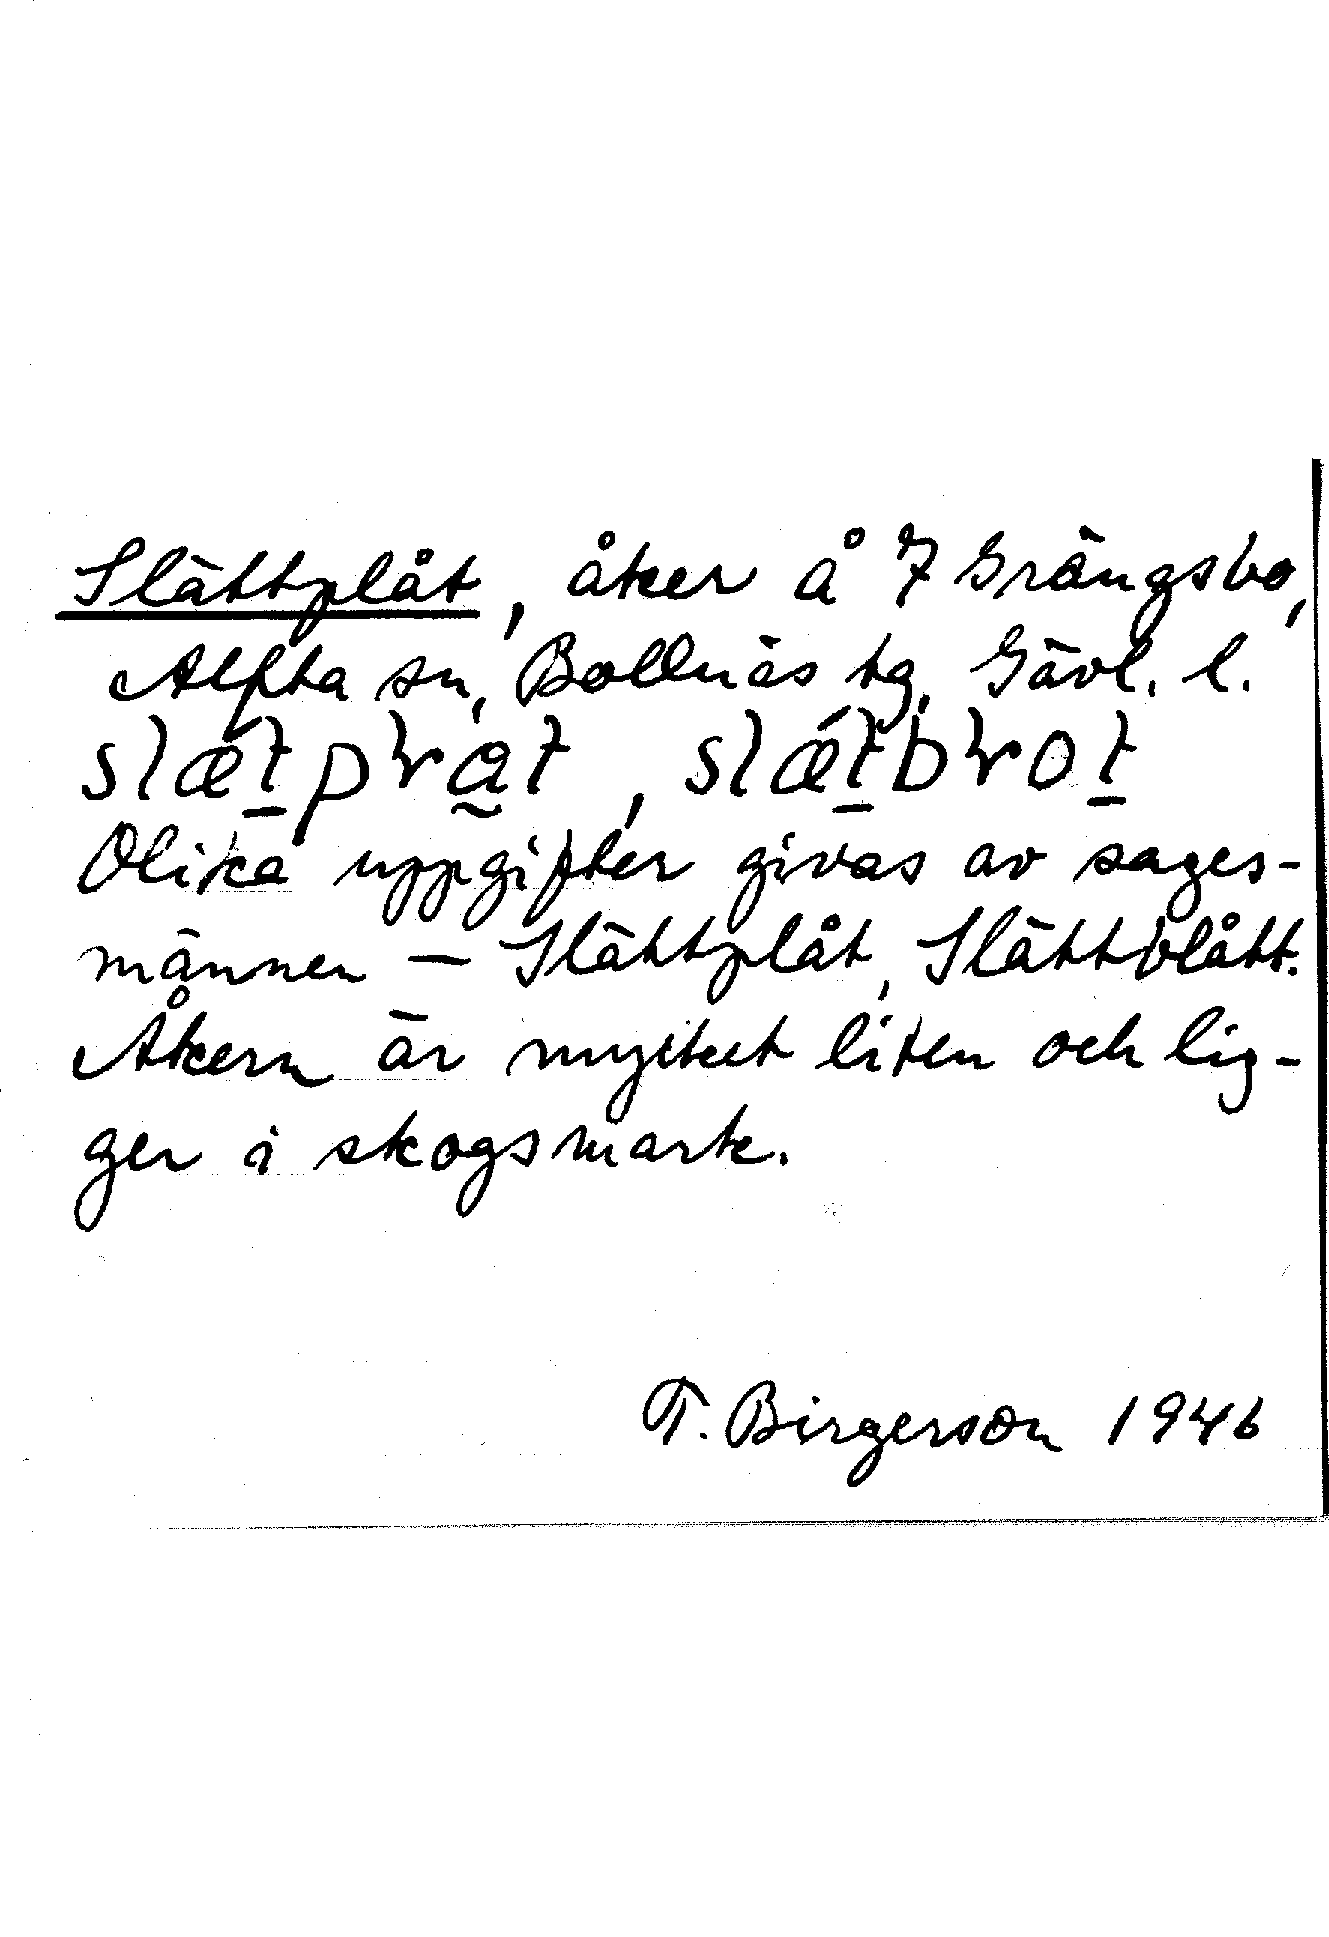 Slättplåt, åker å 7 Grängsbo,
Alfta sn, Bollnäs tg, Gävl. l.
Olika uppgifter givas av sages-
männen — Slättplåt, Slättblått.
Åkern är mycket liten och lig-
ger i skogsmark.
T. Birgerson 1946